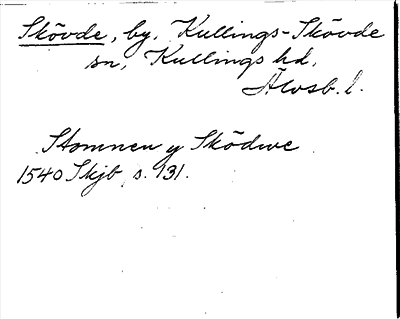 Skövde, by. Kullings-Skövde
sn, Kullings hd,
Älvsb. l.
Stomnen y Sködwe
1540 Skjb s. 131.